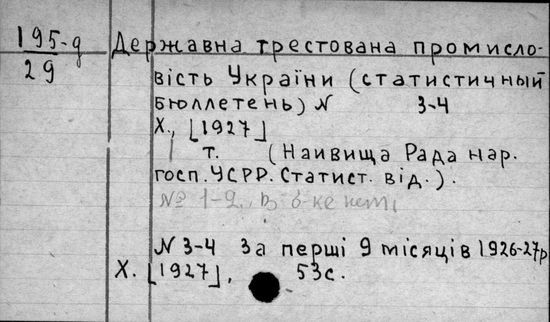 195-д
29
Державна трестована промисло-
вість України (статистичный
бюллетень) N 3-4
Х., [1927]
т. (Наивища Рада нар.
госп. УСРР. Статист. від.).
№ 1-2, в б-ке нет
N 3-4 За перші 9 місяців 1926-27р
Х. [1927], 53с.